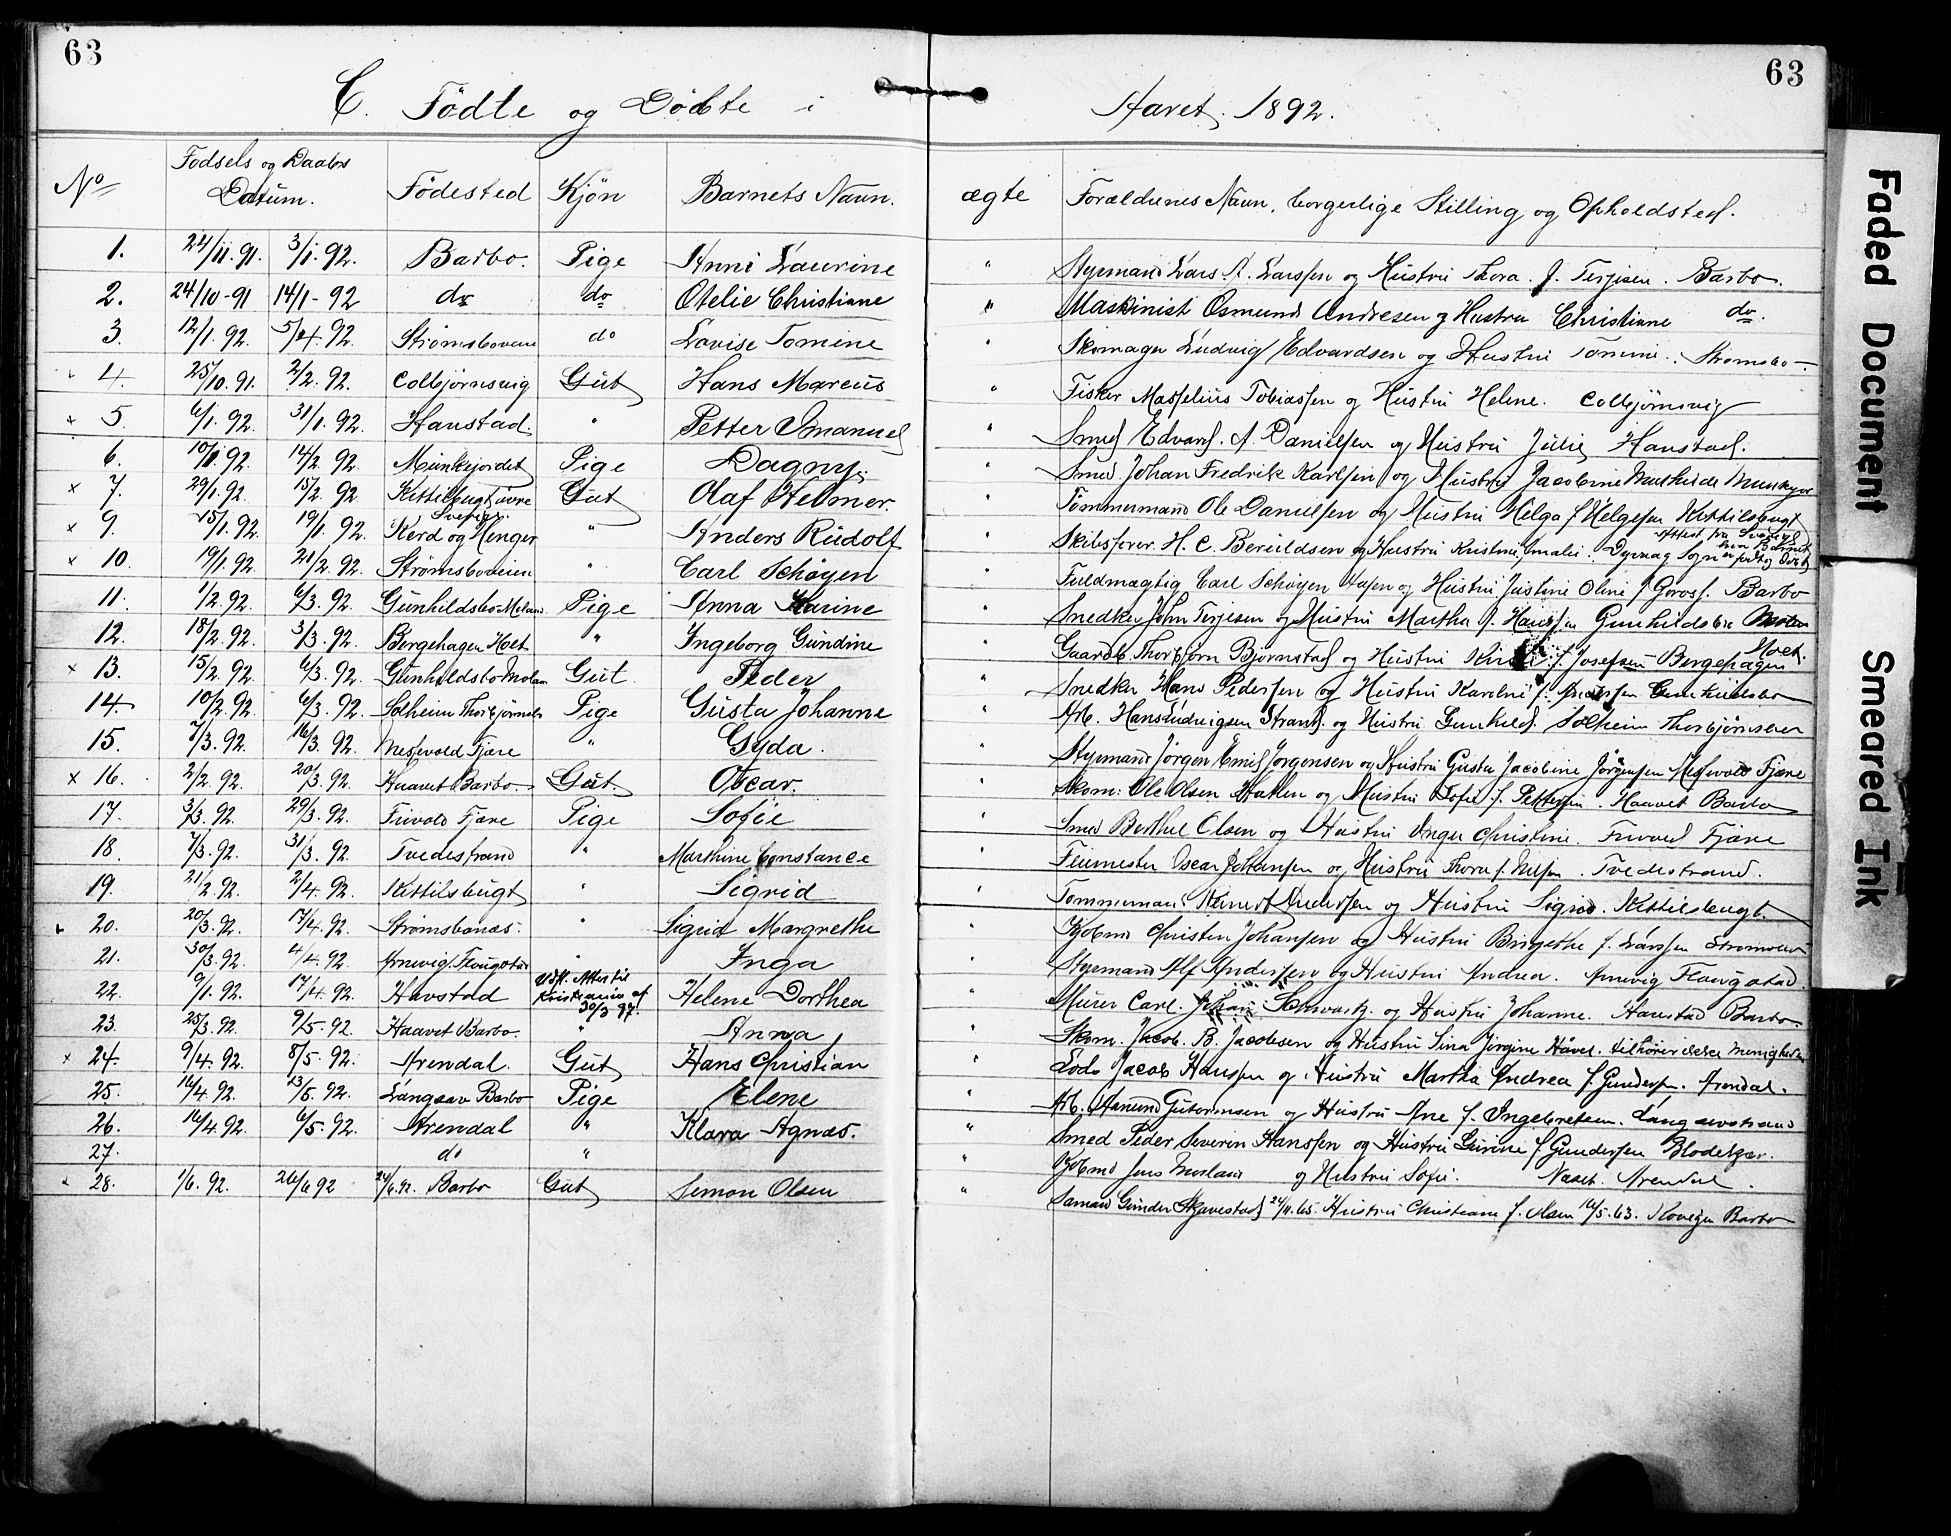 63
63
C. Födte og Döbte i Aaret 1892.
No Fødsels og Daabs Datum. Födested Kjön Barnets Navn. ægte Forældrenes Navn, borgerlige Stilling og Opholdsted.
1. 24/11.91. 3/1.92. Barbo. Pige Anni Laurine " Styrmand Lars A. Larssen og Hustru Thora f. Terjesen. Barbo.
2. 24/10-91 14/1-92 do do Otelie Christiane " Maskinist Osmund Andresen og Hustru Christiane do.
3. 12/1.92. 5/4.92. Strømsboveien do Lovise Tomine " Skomager Ludvig Edvardsen og Hustru Tomine. Strømsbo
4. 25/10.91. 2/2.92. Colbjørnsvig Gut Hans Marcus " Fisker Tobiassen og Hustru Helene. Colbjörnsvig
x 5. 6/1.92. 31/1.92. Haustad " Petter Imanuel " Smed Edvard. A. Danielsen og Hustru Julie Haustad.
6. 10/1.92. 14/2.92. Munkejordet Pige Dagny. " Smed Johan Fredrik Karlsen og Hustru Jacobine
x 7. 29/1.92. 15/2.92. Kittilbugt øvre Gut Olaf Helmer. " Tømmermand Ole Danielsen og Hustru Helga f Helgesen Kittilsbugt
Sverige. Attest fra Sverige
x 9. 15/1.92. 19/1.92. Kerd og Henger " Anders Rudolf " Skibsfører H. C. Beruldsen og Hustru Kristine Amalie. Sogn
x 10. 19/1.92. 21/2.92. Strømsboveien " Carl Schøyen " Fuldmægtig Carl Schøyen og Hustru Justine Oline f Goross. Barbo
11. 1/2.92. 6/3.92. Gunhildsbo Moland Pige Anna Karine " Snedker John Terjesen og Hustru Martha f. Hanssen Gunhildsbo
12. 18/2.92. 3/3.92. Bergehagen Hoet " Ingeborg Gundine " Gaardb. Thorbjørn Bjørnstad og Hustru f. Josefsen Bergehagen Hoet.
x 13. 15/2.92. 6/3.92. Gunhildsbo Moland Gut. Peder " Snedker Hans Pedersen og Hustru Karoline f. Gunhildsbo
14. 10/2.92. 6/3.92. Solheim Thorbjörnsb Pige Gusta Johanne " Arb. Hans Ludvigsen Strand. og Hustru Gunhild. Solheim
15. 7/3.92. 16/3.92. Nesevold Fjære " Gyda. " Styrmand Jørgen Emil Jørgensen og Hustru Gusta Jacobine Jørgensen Fjære
x 16. 2/2.92. 20/3.92. Haavet Barbo Gut Oscar. " Skom: Ole Olsen og Hustru Sofie f. Pettersen. Haavet Barbo
17. 3/3.92. 29/3.92. Frivold Fjære Pige Sofie " Smed Berthel Olsen og Hustru Inger Christine. Frivold Fjære
18. 7/3.92. 31/3.92. Tvedestrand " Marthine Constance " Oscar Johansen og Hustru Thora f. Nilsen. Tvedestrand.
19. 21/2.92. 2/4.92. Kittilsbugt " Sigrid " Tømmermand Andersen og Hustru Sigrid. Kittilsbugt.
20. 20/3.92. 17/4.92. Strømsbonæs. " Sigrid Margrethe " Kjøbmd Christen Johansen og Hustru Birgethe f. Larssen
21. 30/3.92. 4/4.92. Arnevig. " Inga " Styrmand Alf Andersen og Hustru Andrea. Arnevig
22. 9/1.92. 17/4.92. Havstad Udst. Attest til Kristiania af 30/3 97. Helene Dorthea " Murer Carl. Johan Schwartz. og Hustru Johanne. Haustad Barbo
23. 25/3.92. 9/5.92. Haavet Barbo. " Anna " Skom. Jacob. B. Jacobsen og Hustru Sina Jørgine Håvet. tilhører ikke menigheden
x 24. 9/4.92. 8/5.92. Arendal. Gut Hans Christian " Lods Jacob Hanssen og Hustru Martha Andrea f. Gundersen. Arendal.
25. 16/4.92. 23/5.92. Langsæv Barbo Pige Elene " Arb. Aanund Gutormsen og Hustru Ane f. Ingebretsen.
26. 16/4.92. 6/5.92. Arendal " Klara Agnæs. " Smed Peder Severin Hanssen og Hustru f Gundersen
27. do " " Kjøbmd Jens og Hustru Sofie. Arendal.
28. 1/6.92. 26/6 92 24/6.92. Barbo Gut Simon Olsen " Sømand Gunder 24/11.65. Hustru Christiane f. Olsen 16/5.63. Barbo
Faded Document
Smeared Ink